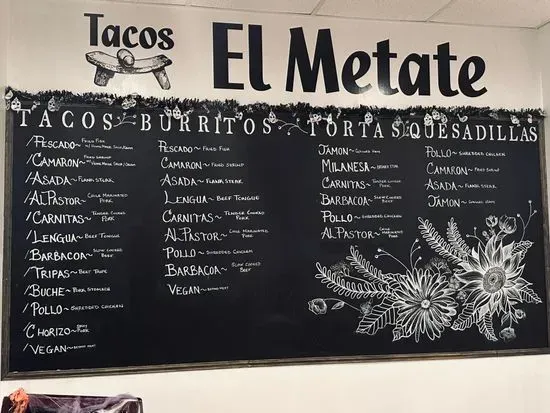 Tacos
El Metate
TACOS BURRITOS TORTAS QUESADILLAS
PESCADO~ FRIED FISH
CAMARON~ FRIED SHRIMP
ASADA~ FLANK STEAK
AL PASTOR~ CHILE MARINATED PORK
CARNITAS~ TENDER CHUNKS PORK
LENGUA~ BEEF TONGUE
BARBACOA~ SLOW COOKED BEEF
TRIPAS~ BEEF TRIPE
BUCHE~ PORK STOMACH
POLLO~ SHREDDED CHICKEN
CHORIZO~ SPICY PORK
VEGAN~
PESCADO~ FRIED FISH
CAMARON~ FRIED SHRIMP
ASADA~ FLANK STEAK
LENGUA~ BEEF TONGUE
CARNITAS~ TENDER CHUNKS PORK
AL PASTOR~ CHILE MARINATED PORK
POLLO~ SHREDDED CHICKEN
BARBACOA~ SLOW COOKED BEEF
VEGAN~
JAMON~
MILANESA~
CARNITAS~ TENDER CHUNKS PORK
BARBACOA~ SLOW COOKED BEEF
POLLO~ SHREDDED CHICKEN
AL PASTOR~ CHILE MARINATED PORK
POLLO~ SHREDDED CHICKEN
CAMARON~ FRIED SHRIMP
ASADA~ FLANK STEAK
JAMON~